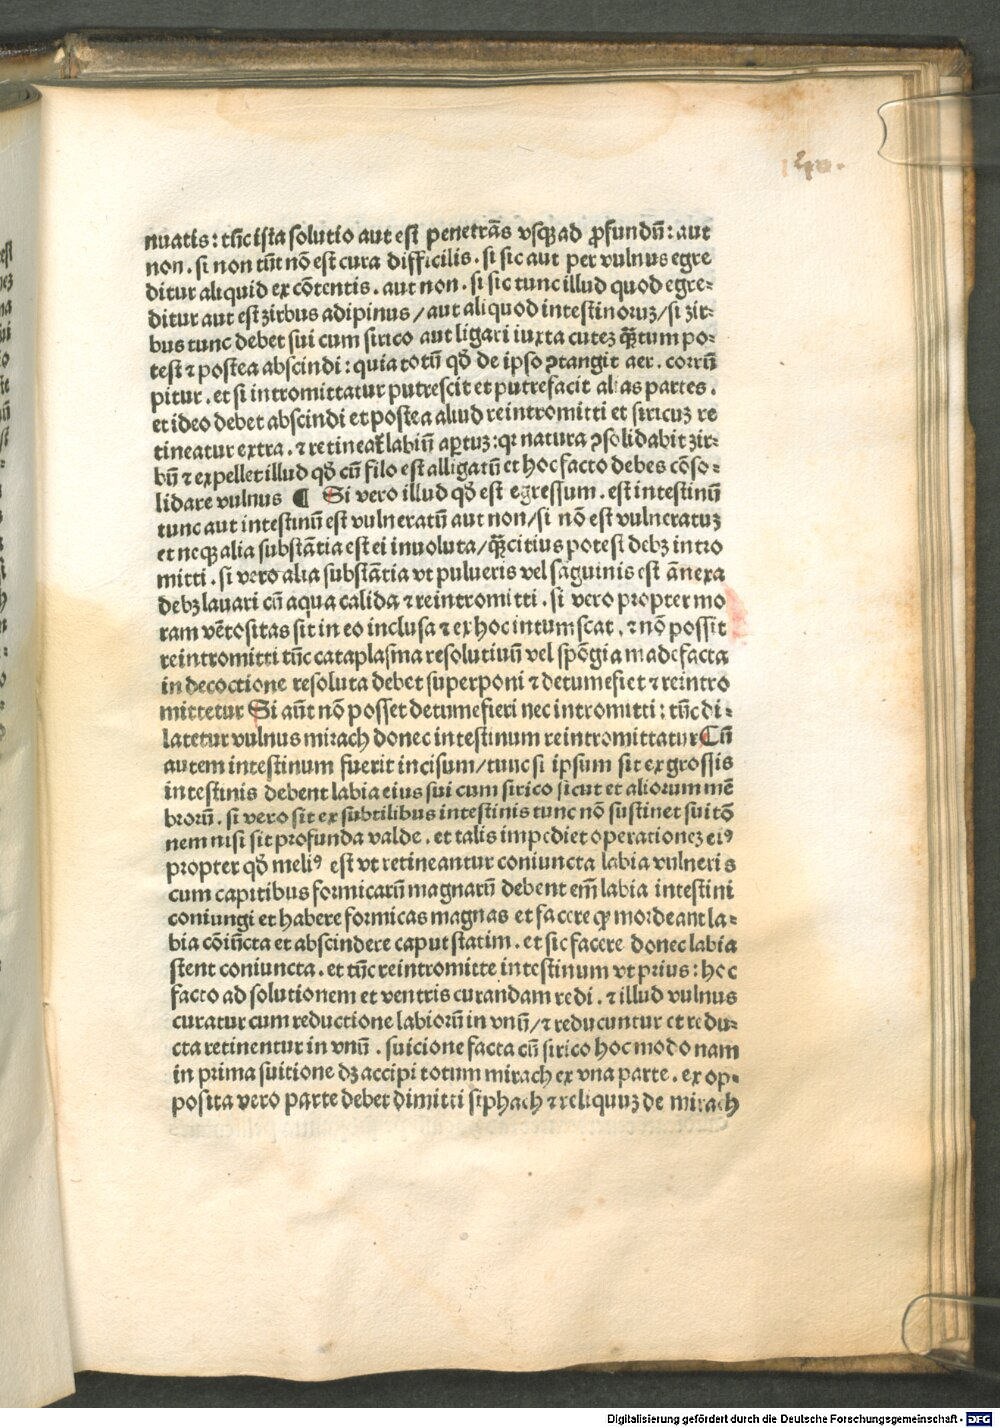 140.
nuatis: tūc ista solutio aut est penetrās vsqꝫ ad ꝓfundū: aut
non. si non tūt nō est cura difficilis. si sic aut per vulnus egre
ditur aliquid ex cōtentis. aut non. si sic tunc illud quod egre⸗
ditur aut est zirbus adipinus/ aut aliquod intestinoruz/ si zir⸗
bus tunc debet sui cum sirico aut ligari iuxta cutez qꝫtum po⸗
test ⁊ postea abscindi: quia totū qđ de ipso ꝯtangit aer. corrū
pitur. et si intromittatur putrescit et putrefacit alias partes.
et ideo debet abscindi et postea aliud reintromitti et siricuz re
tineatur extra. ⁊ retineat̄ labiū aꝑtuz: qꝛ natura ꝯsolidabit zir⸗
bū ⁊ expellet illud qđ cū filo est alligatū et hoc facto debes cōso⸗
lidare vulnus ¶ Si vero illud qđ est egressum. est intestinū
tunc aut intestinū est vulneratū aut non/ si nō est vulneratuz
et neqꝫ alia substātia est ei inuoluta/ qꝫcitius potest debꝫ intro
mitti. si vero alia substātia vt pulueris vel saguinis est ānexa
debꝫ lauari cū aqua calida ⁊ reintromitti. si vero propter mo
ram vētositas sit in eo inclusa ⁊ ex hoc intumscat. ⁊ nō possit
reintromitti tūc cataplasma resolutiuū vel spōgia madefacta
in decoctione resoluta debet superponi ⁊ detumefiet ⁊ reintro
mittetur Si aūt nō posset detumefieri nec intromitti: tūc di⸗
latetur vulnus mirach donec intestinum reintromittatur Cū
autem intestinum fuerit incisum/ tunc si ipsum sit ex grossis
intestinis debent labia eius sui cum sirico sicut et aliorum mē
brorū. si vero sit ex subtilibus intestinis tunc nō sustinet suitō
nem nisi sit profunda valde. et talis impediet operationez eiꝰ
propter qđ meliꝰ est vt retineantur coniuncta labia vulneris
cum capitibus formicarū magnarū debent em̄ labia intestini
coniungi et habere formicas magnas et facere qꝫ mordeant la⸗
bia cōiūcta et abscindere caput statim. et sic facere donec labia
stent coniuncta. et tūc reintromitte intestinum vt prius: hoc
facto ad solutionem et ventris curandam redi. ⁊ illud vulnus
curatur cum reductione labiorū in vnū/ ⁊ reducuntur et redu⸗
cta retinentur in vnū. suicione facta cū sirico hoc modo nam
in prima suitione dꝫ accipi totum mirach ex vna parte. ex op⸗
posita vero parte debet dimitti siphach ⁊ reliquuz de mirach
Digitalisierung gefördert durch die Deutsche Forschungsgemeinschaft - DFG